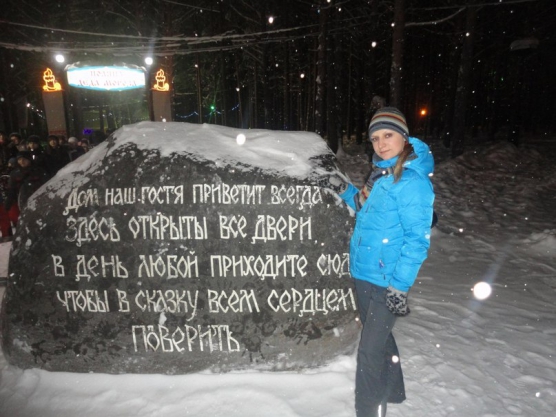 Дом наш гостя приветит всегда
Здесь открыты все двери
В день любой приходите сюда
чтобы в сказку всем сердцем
поверить